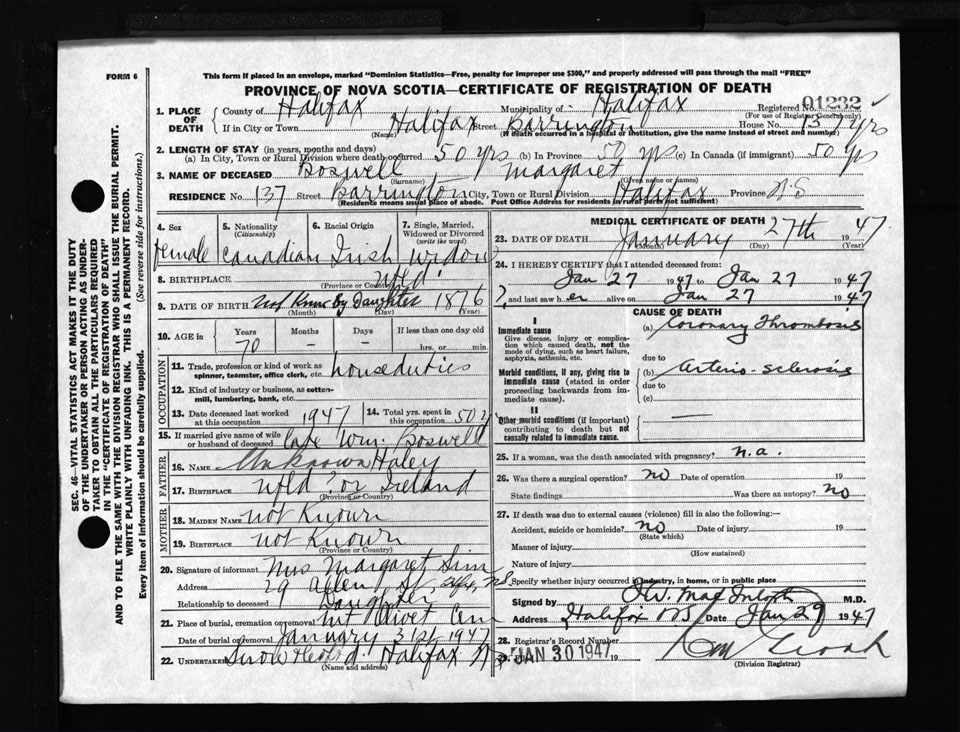 FORM 6
This form if placed in an envelope, marked "Dominion Statistics—Free, penalty for improper use $300," and properly addressed will pass through the mail "FREE"
PROVINCE OF NOVA SCOTIA—CERTIFICATE OF REGISTRATION OF DEATH
1. PLACE OF DEATH County of Halifax Municipality of Halifax Registered No. 01232
(For use of Registrar General only)
If in City or Town Halifax Street Barrington House No. 13 yrs
(Name) (If death occurred in a hospital or institution, give the name instead of street and number)
2. LENGTH OF STAY (in years, months and days)
(a) In City, Town or Rural Division where death occurred 50 yrs (b) In Province 50 yrs (c) In Canada (if immigrant) 50 yrs
3. NAME OF DECEASED Boswell Margaret
(Surname) (Given name or names)
RESIDENCE No. 137 Street Barrington City, Town or Rural Division Halifax Province N.S
(Residence means usual place of abode. Post Office Address for residents in rural parts not sufficient)
4. Sex 5. Nationality (Citizenship) 6. Racial Origin 7. Single, Married, Widowed or Divorced (write the word)
Female Canadian Irish Widow
8. BIRTHPLACE Nfld
(Province or Country)
9. DATE OF BIRTH Not Known by Daughter 1876
(Month) (Day) (Year)
10. AGE in Years Months Days If less than one day old
70 – – hrs. or min.
OCCUPATION
11. Trade, profession or kind of work as spinner, teamster, office clerk, etc. housedutics
12. Kind of industry or business, as cotton-mill, lumbering, bank, etc.
13. Date deceased last worked at this occupation 1947 14. Total yrs. spent in this occupation 50 y
15. If married give name of wife or husband of deceased Late Wm. Boswell
FATHER
16. NAME Unknown Haley
17. BIRTHPLACE Nfld ? or Ireland
(Province or Country)
MOTHER
18. MAIDEN NAME not Known
19. BIRTHPLACE not Known
(Province or Country)
20. Signature of informant Mrs Margaret Sim
Address 29 Allen St, Hfx, N.S.
Relationship to deceased Daughter
21. Place of burial, cremation or removal Mt Olivet Cem
Date of burial or removal January 31st 1947
22. UNDERTAKER Snow & Co Ltd. Halifax N S
(Name and address)
MEDICAL CERTIFICATE OF DEATH
23. DATE OF DEATH January 27th 1947
(Month) (Day) (Year)
24. I HEREBY CERTIFY that I attended deceased from:
Jan 27 1947 to Jan 27 1947
and last saw her alive on Jan 27 1947
CAUSE OF DEATH
I
Immediate cause
Give disease, injury or complication which caused death, not the mode of dying, such as heart failure, asphyxia, asthenia, etc.
(a) Coronary Thrombosis
due to
Morbid conditions, if any, giving rise to immediate cause (stated in order proceeding backwards from immediate cause).
(b) Arterio-sclerosis
due to
(c)
II
Other morbid conditions (if important) contributing to death but not causally related to immediate cause.
25. If a woman, was the death associated with pregnancy? n.a.
26. Was there a surgical operation? no Date of operation 19
State findings Was there an autopsy? No
27. If death was due to external causes (violence) fill in also the following:—
Accident, suicide or homicide? no Date of injury 19
(State which)
Manner of injury
(How sustained)
Nature of injury
Specify whether injury occurred in industry, in home, or in public place
Signed by MacIntosh M.D.
Address Halifax NS Date Jan 29 1947
28. Registrar's Record Number
JAN 30 1947 19
(Division Registrar)
SEC. 46—VITAL STATISTICS ACT MAKES IT THE DUTY
OF THE UNDERTAKER OR PERSON ACTING AS UNDER-
TAKER TO OBTAIN ALL THE PARTICULARS REQUIRED
IN THE "CERTIFICATE OF REGISTRATION OF DEATH"
AND TO FILE THE SAME WITH THE DIVISION REGISTRAR WHO SHALL ISSUE THE BURIAL PERMIT.
WRITE PLAINLY WITH UNFADING INK. THIS IS A PERMANENT RECORD.
Every item of information should be carefully supplied. (See reverse side for instructions.)